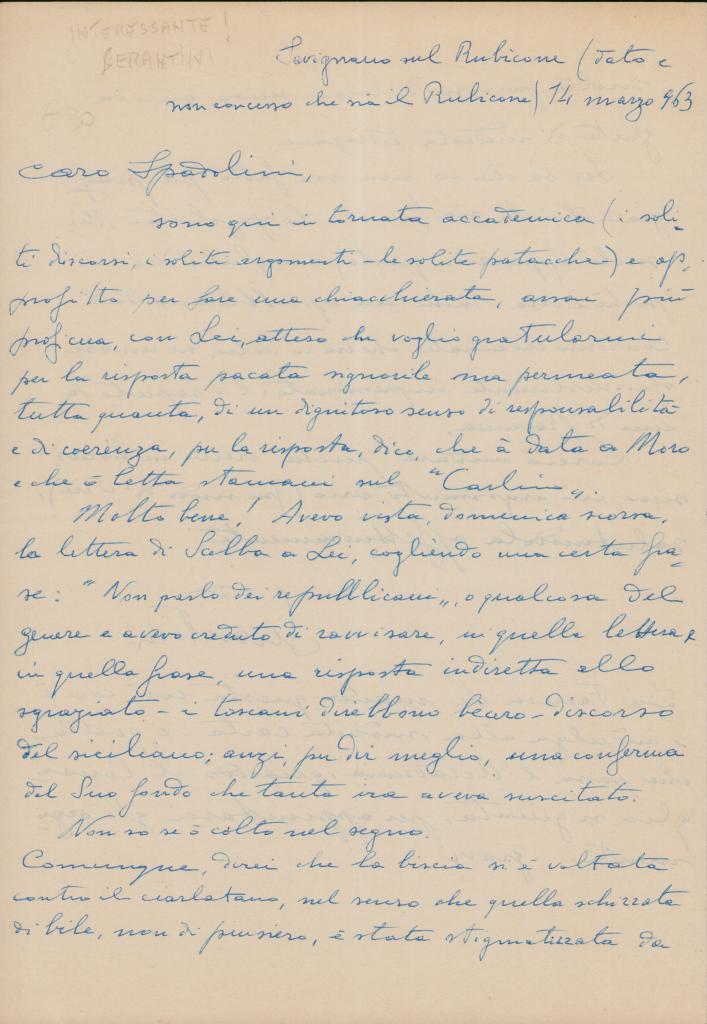 INTERESSANTE!
BERANTINI
Savignano sul Rubicone (dato e
non concesso che sia il Rubicone) 14 marzo 963
Caro Spadolini,
sono qui in tornata accademica (i soli-
ti discorsi, i soliti argomenti - le solite patacche -) e ap-
profitto per fare una chiacchierata, assai più
proficua, con Lei, atteso che voglio gratularmi
per la risposta pacata signorile ma permeata,
tutta quanta, di un dignitoso senso di responsabilità
e di coerenza, per la risposta, dico, che à data a Moro
e che ò letta stamani sul "Carlino".
Molto bene! Avevo vista, domenica scorsa,
la lettera di Scelba a Lei, cogliendo una certa fra-
se: "Non parlo dei repubblicani", o qualcosa del
genere e avevo creduto di ravvisare, in quella lettera e
in quella frase, una risposta indiretta allo
sgraziato - i toscani direbbono bècero - discorso
del siciliano; anzi, per dir meglio, una conferma
del Suo fondo che tanta ira aveva suscitato.
Non so se ò colto nel segno.
Comunque, direi che la biscia si è voltata
contro il ciarlatano, nel senso che quella schizzata
di bile, non di pensiero, è stata stigmatizzata da